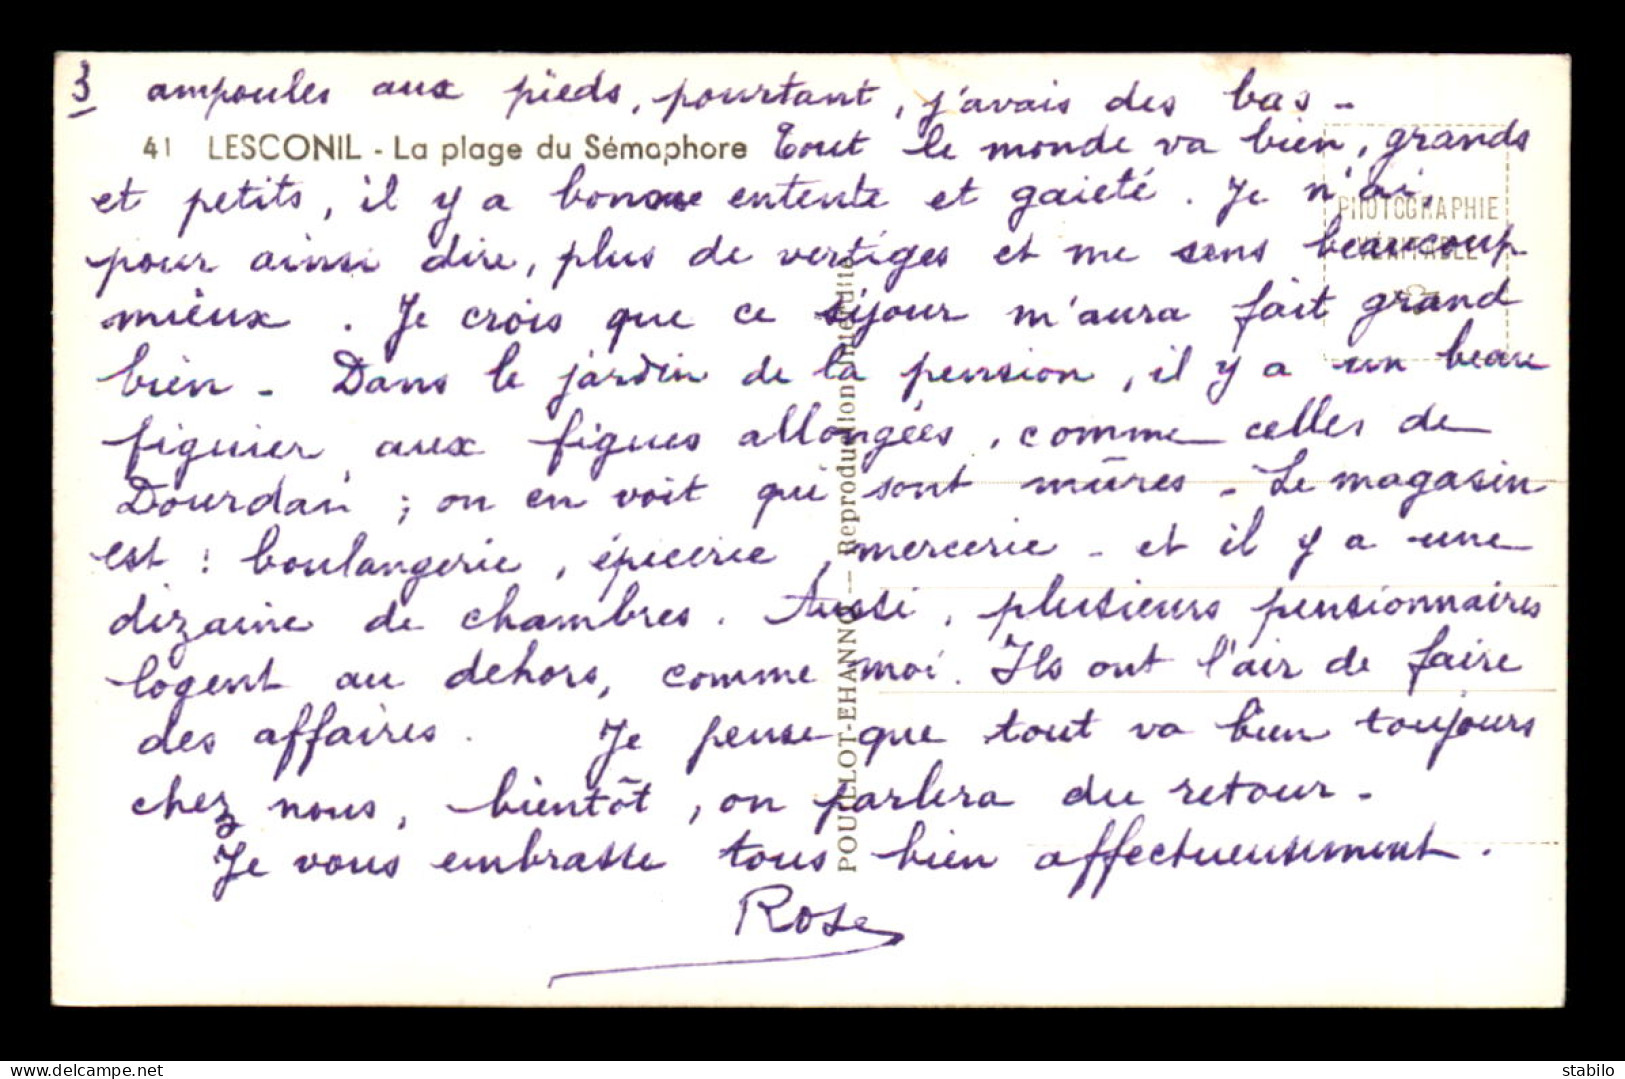 3 ampoules aux pieds, pourtant, j'avais des bas -
41 LESCONIL - La plage du Sémaphore Tout le monde va bien, grands
et petits, il y a bonne entente et gaieté. Je n'ai,
PHOTOGRAPHIE
pour ainsi dire, plus de vertiges et me sens beaucoup
VÉRITABLE
mieux. Je crois que ce séjour m'aura fait grand
bien - Dans le jardin de la pension, il y a un beau
figuier aux figues allongées, comme celles de
Dourdan ; on en voit qui sont mûres - Le magasin
est : boulangerie, épicerie, mercerie - et il y a une
dizaine de chambres. Aussi, plusieurs pensionnaires
logent au dehors, comme moi. Ils ont l'air de faire
des affaires. Je pense que tout va bien toujours
chez nous, bientôt, on parlera du retour -
Je vous embrasse tous bien affectueusement.
Rose
POUILLOT-EHANNO — Reproduction interdite
stabilo